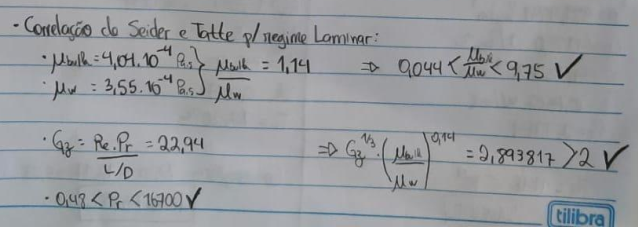 · Correlação do Seider e Tatte p/ regime Laminar:
· μbulk = 4,04.10⁻⁴ Pa.s } μbulk/μw = 1,14 ⇒ 0,044 < μbulk/μw < 9,75 ✓
· μw = 3,55.10⁻⁴ Pa.s
· Gz = Re.Pr/(L/D) = 22,94 ⇒ Gz^1/3 . (μbulk/μw)^0,14 = 2,893817 > 2 ✓
· 0,48 < Pr < 16700 ✓
tilibra